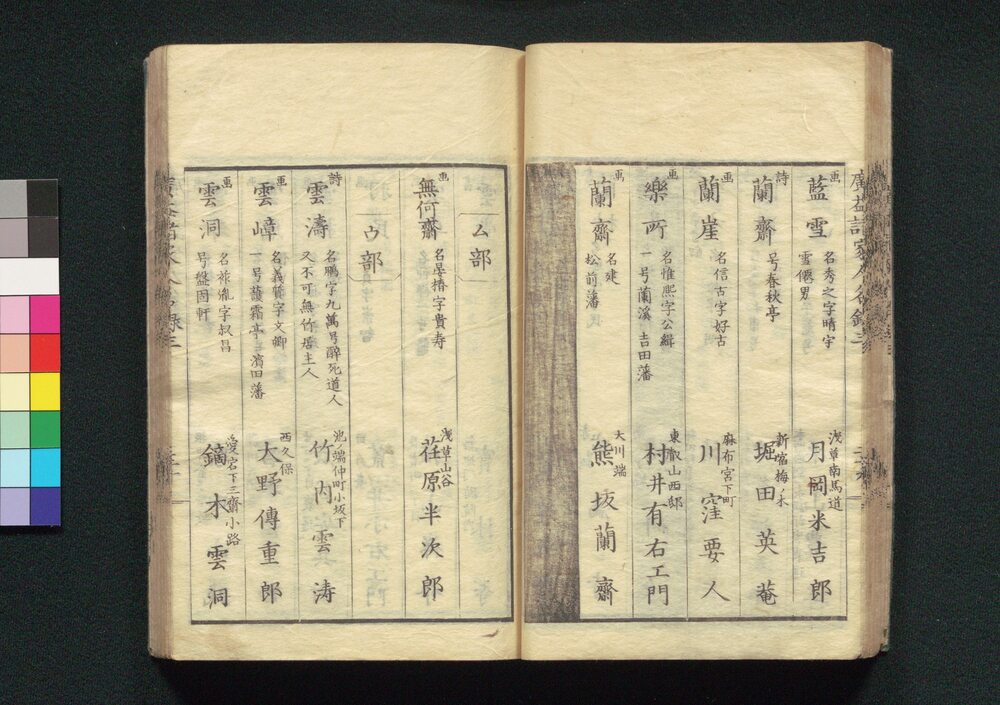 画
藍雪
名秀之字晴宇
雪僊男
浅草南馬道
月岡米吉郎
詩
蘭齋
号春秋亭
新宿梅ノ木
堀田英菴
画
蘭崖
名信古字好古
麻布宮下町
川窪要人
画
樂所
名惟熙字公緝
一号蘭溪 吉田藩
東叡山西邸
村井有右エ門
画
蘭齋
名建
松前藩
大川端
熊坂蘭齋
ム部
画
無何齋
字貴寿
浅草山谷
荏原半次郎
ウ部
詩
雲濤
名鵬字九萬号醉死道人
又不可無竹居主人
池ノ端仲町小坂下
竹内雲涛
画
雲嶂
名義賢字文卿
一号護霜亭 濱田藩
西久保
大野傳重郎
画
雲洞
名祿胤字叔昌
号盤固軒
愛宕下三齋小路
鏑木雲洞